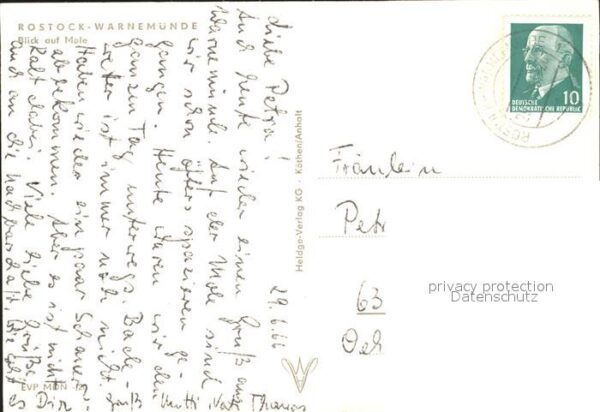 ROSTOCK-WARNEMÜNDE
Blick auf Mole
Liebe Petra!
Auch heute wieder einen Gruß aus
Warnemünde. Auf der Mole sind
wir schon öfters spazieren ge-
gangen. Heute waren wir den
ganzen Tag unterwegs. Bade-
wetter ist immer noch nicht.
Haben wieder ein paar Schauer
abbekommen. Aber es ist nicht
kalt dabei. Viele liebe Grüße
auch an die Nachbarschaft. Wie geht es Dir
Mutti Vati Thomas
29.6.66
Heldge-Verlag KG · Köthen/Anhalt
EVP MDN
DEUTSCHE
DEMOKRATISCHE REPUBLIK
10
Fräulein
Petr
63
privacy protection
Datenschutz